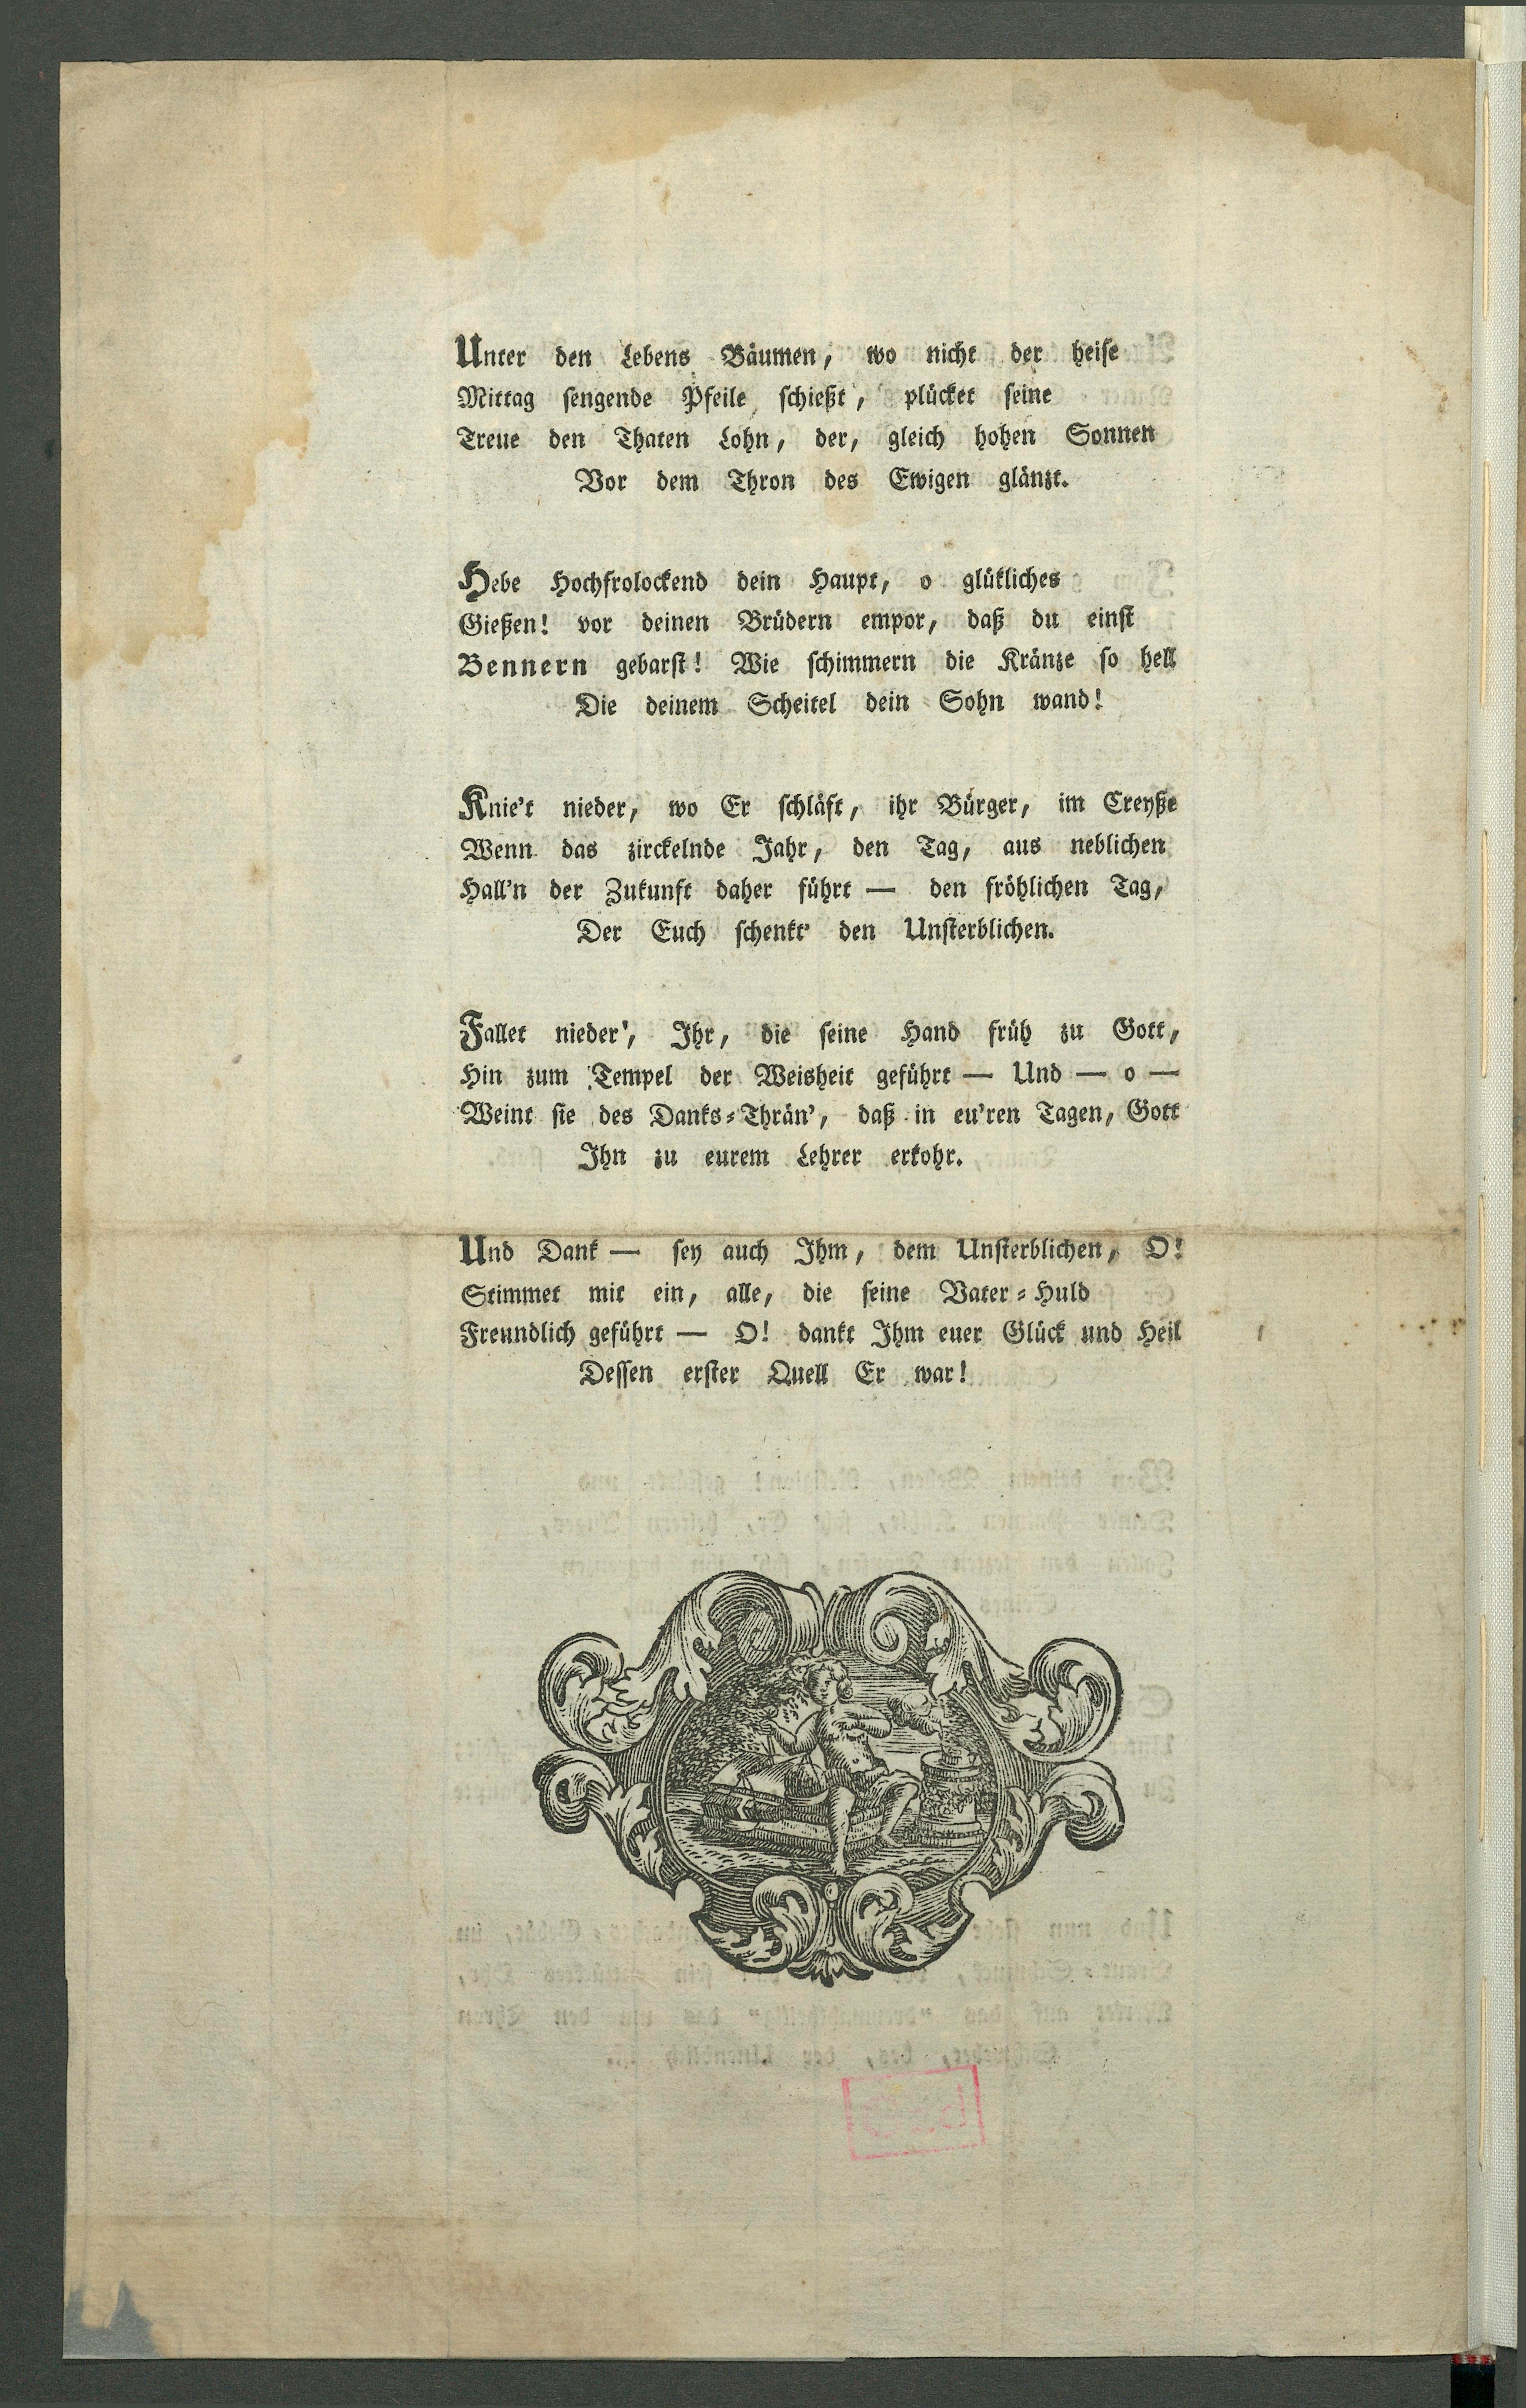 Unter den Lebens Bäumen, wo nicht der heise
Mittag sengende Pfeile schießt, plücket seine
Treue den Thaten Lohn, der, gleich hohen Sonnen
Vor dem Thron des Ewigen glänzt.
Hebe Hochfrolockend dein Haupt, o glükliches
Gießen! vor deinen Brüdern empor, daß du einst
Bennern gebarst! Wie schimmern die Kränze so hell
Die deinem Scheitel dein Sohn wand!
Knie't nieder, wo Er schläft, ihr Bürger, im Creyße
Wenn das zirckelnde Jahr, den Tag, aus neblichen
Hall'n der Zukunft daher führt — den fröhlichen Tag,
Der Euch schenkt' den Unsterblichen.
Fallet nieder', Ihr, die seine Hand früh zu Gott,
Hin zum Tempel der Weisheit geführt — Und — o —
Weint sie des Danks-Thrän', daß in eu'ren Tagen, Gott
Ihn zu eurem Lehrer erkohr.
Und Dank — sey auch Ihm, dem Unsterblichen, O!
Stimmet mit ein, alle, die seine Vater-Huld
Freundlich geführt — O! dankt Ihm euer Glück und Heil
Dessen erster Quell Er war!